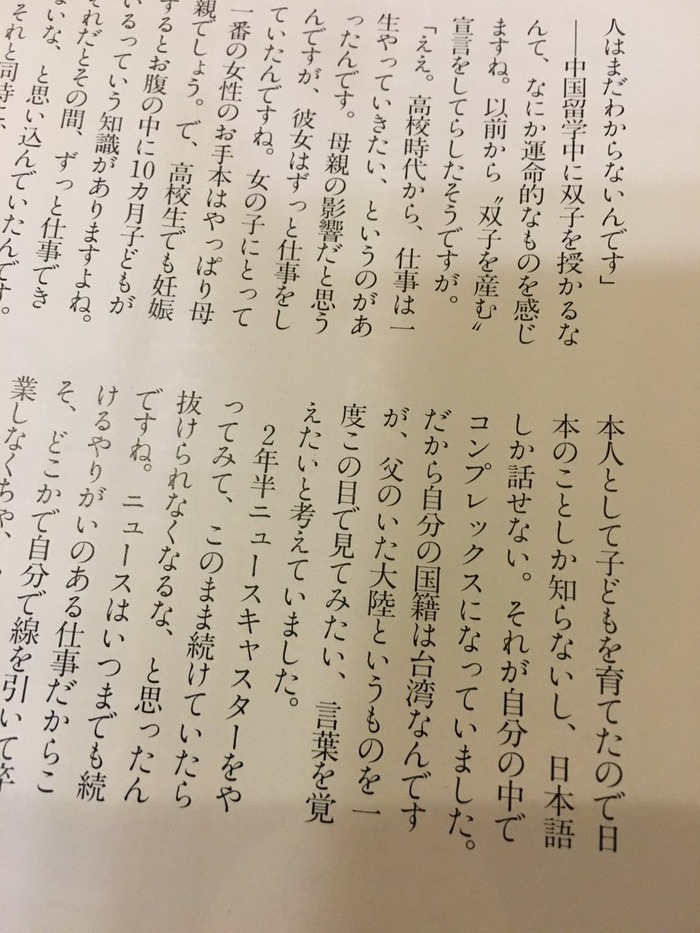 人はまだわからないんです」
──中国留学中に双子を授かるな
んて、なにか運命的なものを感じ
ますね。以前から〝双子を産む〟
宣言をしてらしたそうですが。
「ええ。高校時代から、仕事は一
生やっていきたい、というのがあ
ったんです。母親の影響だと思う
んですが、彼女はずっと仕事をし
ていたんですね。女の子にとって
一番の女性のお手本はやっぱり母
親でしょう。で、高校生でも妊娠
するとお腹の中に10カ月子どもが
いるっていう知識がありますよね。
それだとその間、ずっと仕事でき
ないな、と思い込んでいたんです。
それと同時に、
本人として子どもを育てたので日
本のことしか知らないし、日本語
しか話せない。それが自分の中で
コンプレックスになっていました。
だから自分の国籍は台湾なんです
が、父のいた大陸というものを一
度この目で見てみたい、言葉を覚
えたいと考えていました。
2年半ニュースキャスターをや
ってみて、このまま続けていたら
抜けられなくなるな、と思ったん
ですね。ニュースはいつまでも続
けるやりがいのある仕事だからこ
そ、どこかで自分で線を引いて卒
業しなくちゃ、